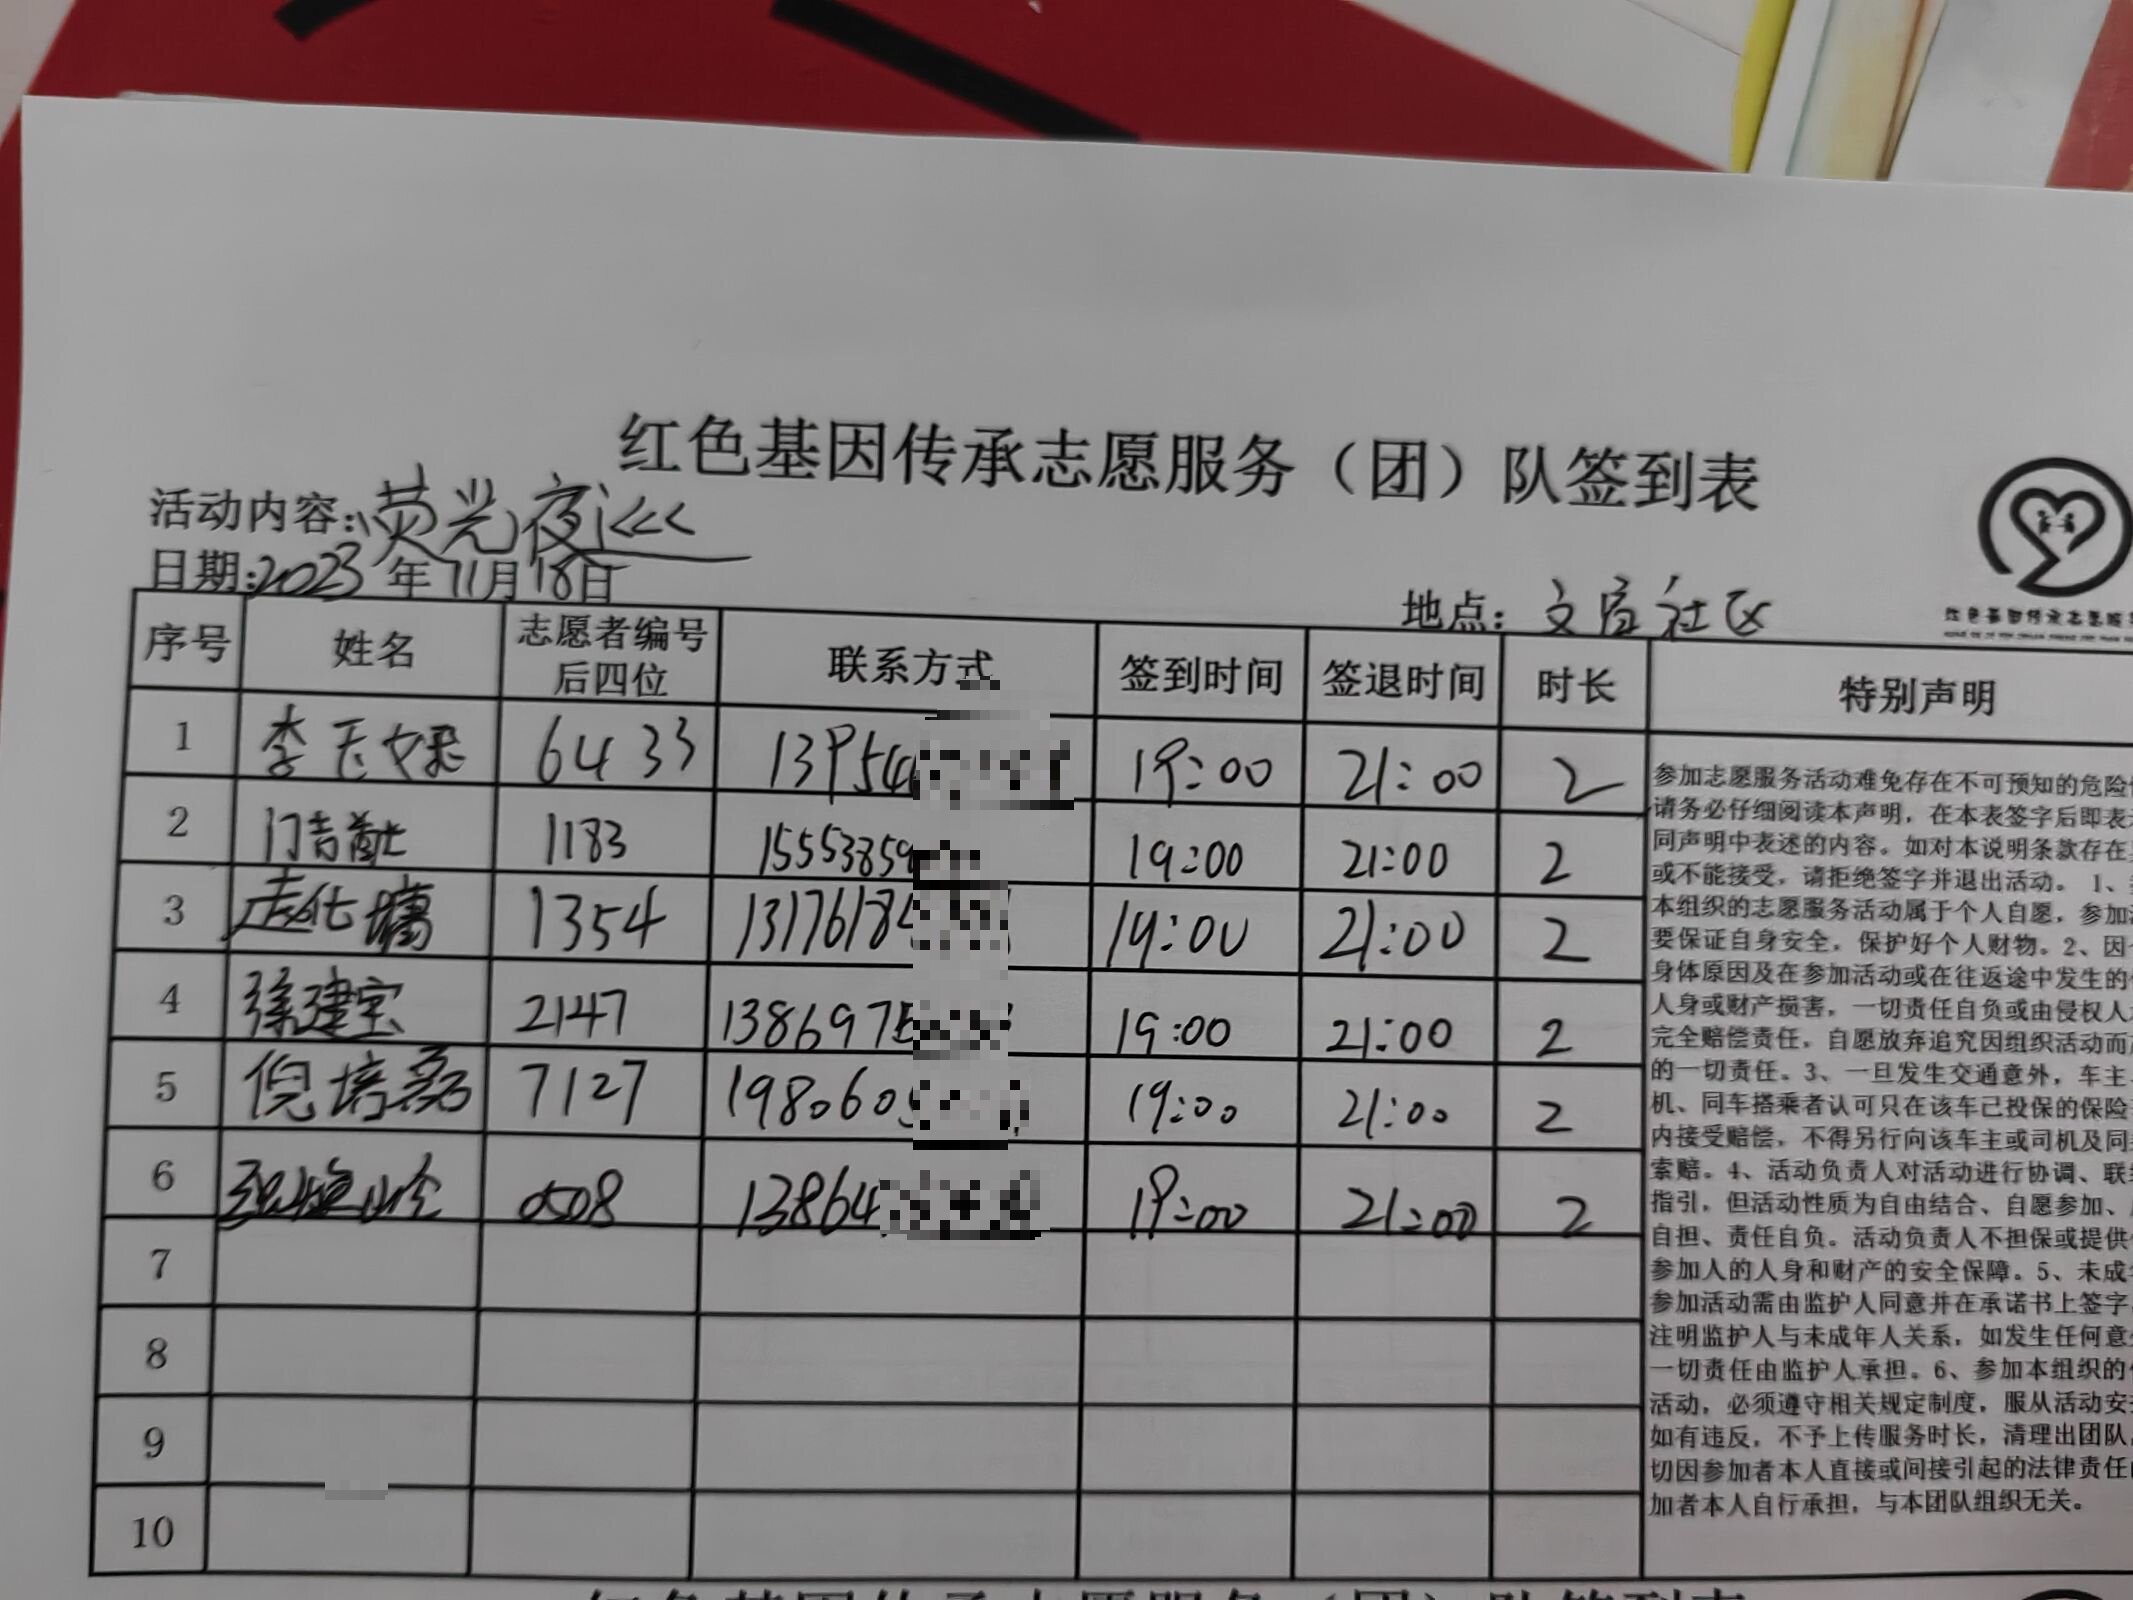 红色基因传承志愿服务（团）队签到表
活动内容：荧光夜巡
日期：2023年11月18日
地点：文宣社区
序号 姓名 志愿者编号后四位 联系方式 签到时间 签退时间 时长 特别声明
1 李玉 6433 13954 19:00 21:00 2
2 1183 15553859 19:00 21:00 2
3 1354 1317618 19:00 21:00 2
4 徐建宝 2147 1386975 19:00 21:00 2
5 倪培磊 7127 198060 19:00 21:00 2
6 0508 13864 19:00 21:00 2
7
8
9
10
参加志愿服务活动难免存在不可预知的危险
请务必仔细阅读本声明，在本表签字后即表
同声明中表述的内容。如对本说明条款存在
或不能接受，请拒绝签字并退出活动。 1、
本组织的志愿服务活动属于个人自愿，参加
要保证自身安全，保护好个人财物。2、因
身体原因及在参加活动或在往返途中发生的
人身或财产损害，一切责任自负或由侵权人
完全赔偿责任，自愿放弃追究因组织活动而
的一切责任。3、一旦发生交通意外，车主、
机、同车搭乘者认可只在该车已投保的保险
内接受赔偿，不得另行向该车主或司机及同
索赔。4、活动负责人对活动进行协调、联
指引，但活动性质为自由结合、自愿参加、
自担、责任自负。活动负责人不担保或提供
参加人的人身和财产的安全保障。5、未成
参加活动需由监护人同意并在承诺书上签字
注明监护人与未成年人关系，如发生任何意
一切责任由监护人承担。6、参加本组织的
活动，必须遵守相关规定制度，服从活动安
如有违反，不予上传服务时长，清理出团队
切因参加者本人直接或间接引起的法律责任
加者本人自行承担，与本团队组织无关。